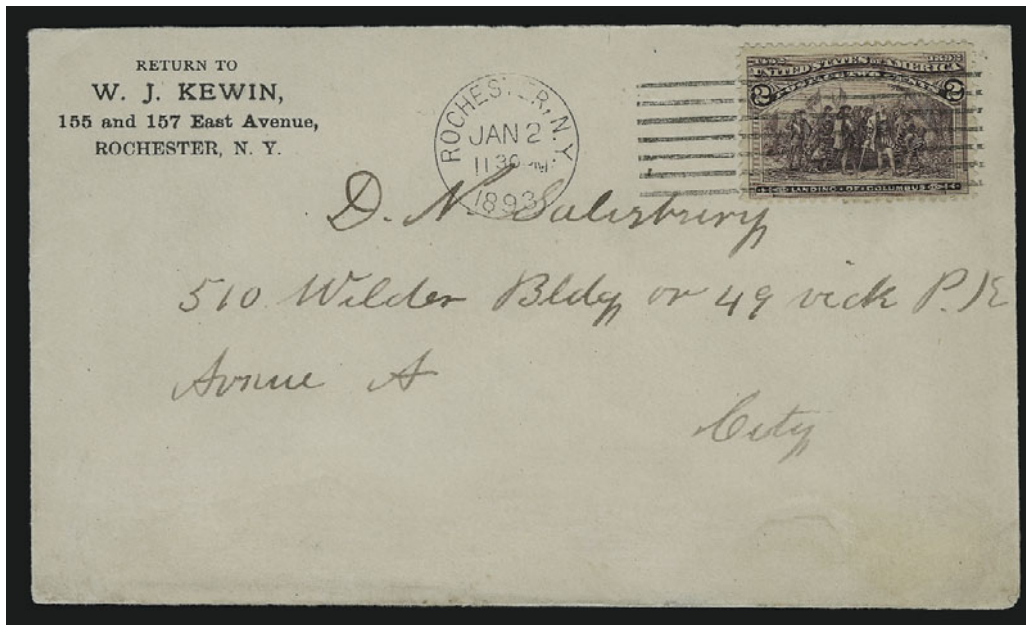 RETURN TO
W. J. KEWIN,
155 and 157 East Avenue,
ROCHESTER, N. Y.
ROCHESTER, N.Y.
JAN 2
11 30 PM
1893
1492 1892
UNITED STATES OF AMERICA
POSTAGE TWO CENTS
2 2
LANDING OF COLUMBUS
D. N. Salisbury
510 Wilder Bldg or 49 vick P.K
Avnue A
City